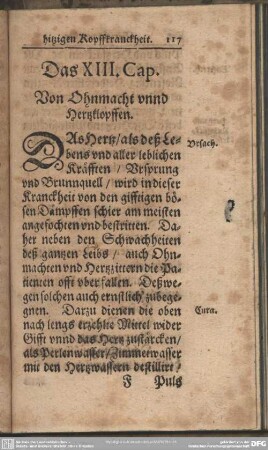 hitzigen Kopffkranckheit. 117
Das XIII. Cap.
Von Ohnmacht vnnd
Hertzklopffen.
DAs Hertz/als deß Le-
bens vnd aller leblichen
Kräfften / Vrsprung
vnd Brunnquell / wird in dieser
Kranckheit von den gifftigen bö-
sen Dämpffen schier am meisten
angefochten vnd bestritten. Da-
her neben den Schwachheiten
deß gantzen Leibs / auch Ohn-
machten vnd Hertzzittern die Pa-
tienten offt vberfallen. Deßwe-
gen solchen auch ernstlich zubege-
gnen. Darzu dienen die oben
nach lengs erzehlte Mittel wider
Gifft vnnd das Hertz zustärcken /
als Perlenwasser/Zimmetwasser
mit den Hertzwassern destillirt /
F Puls
Vrsach.
Cura.